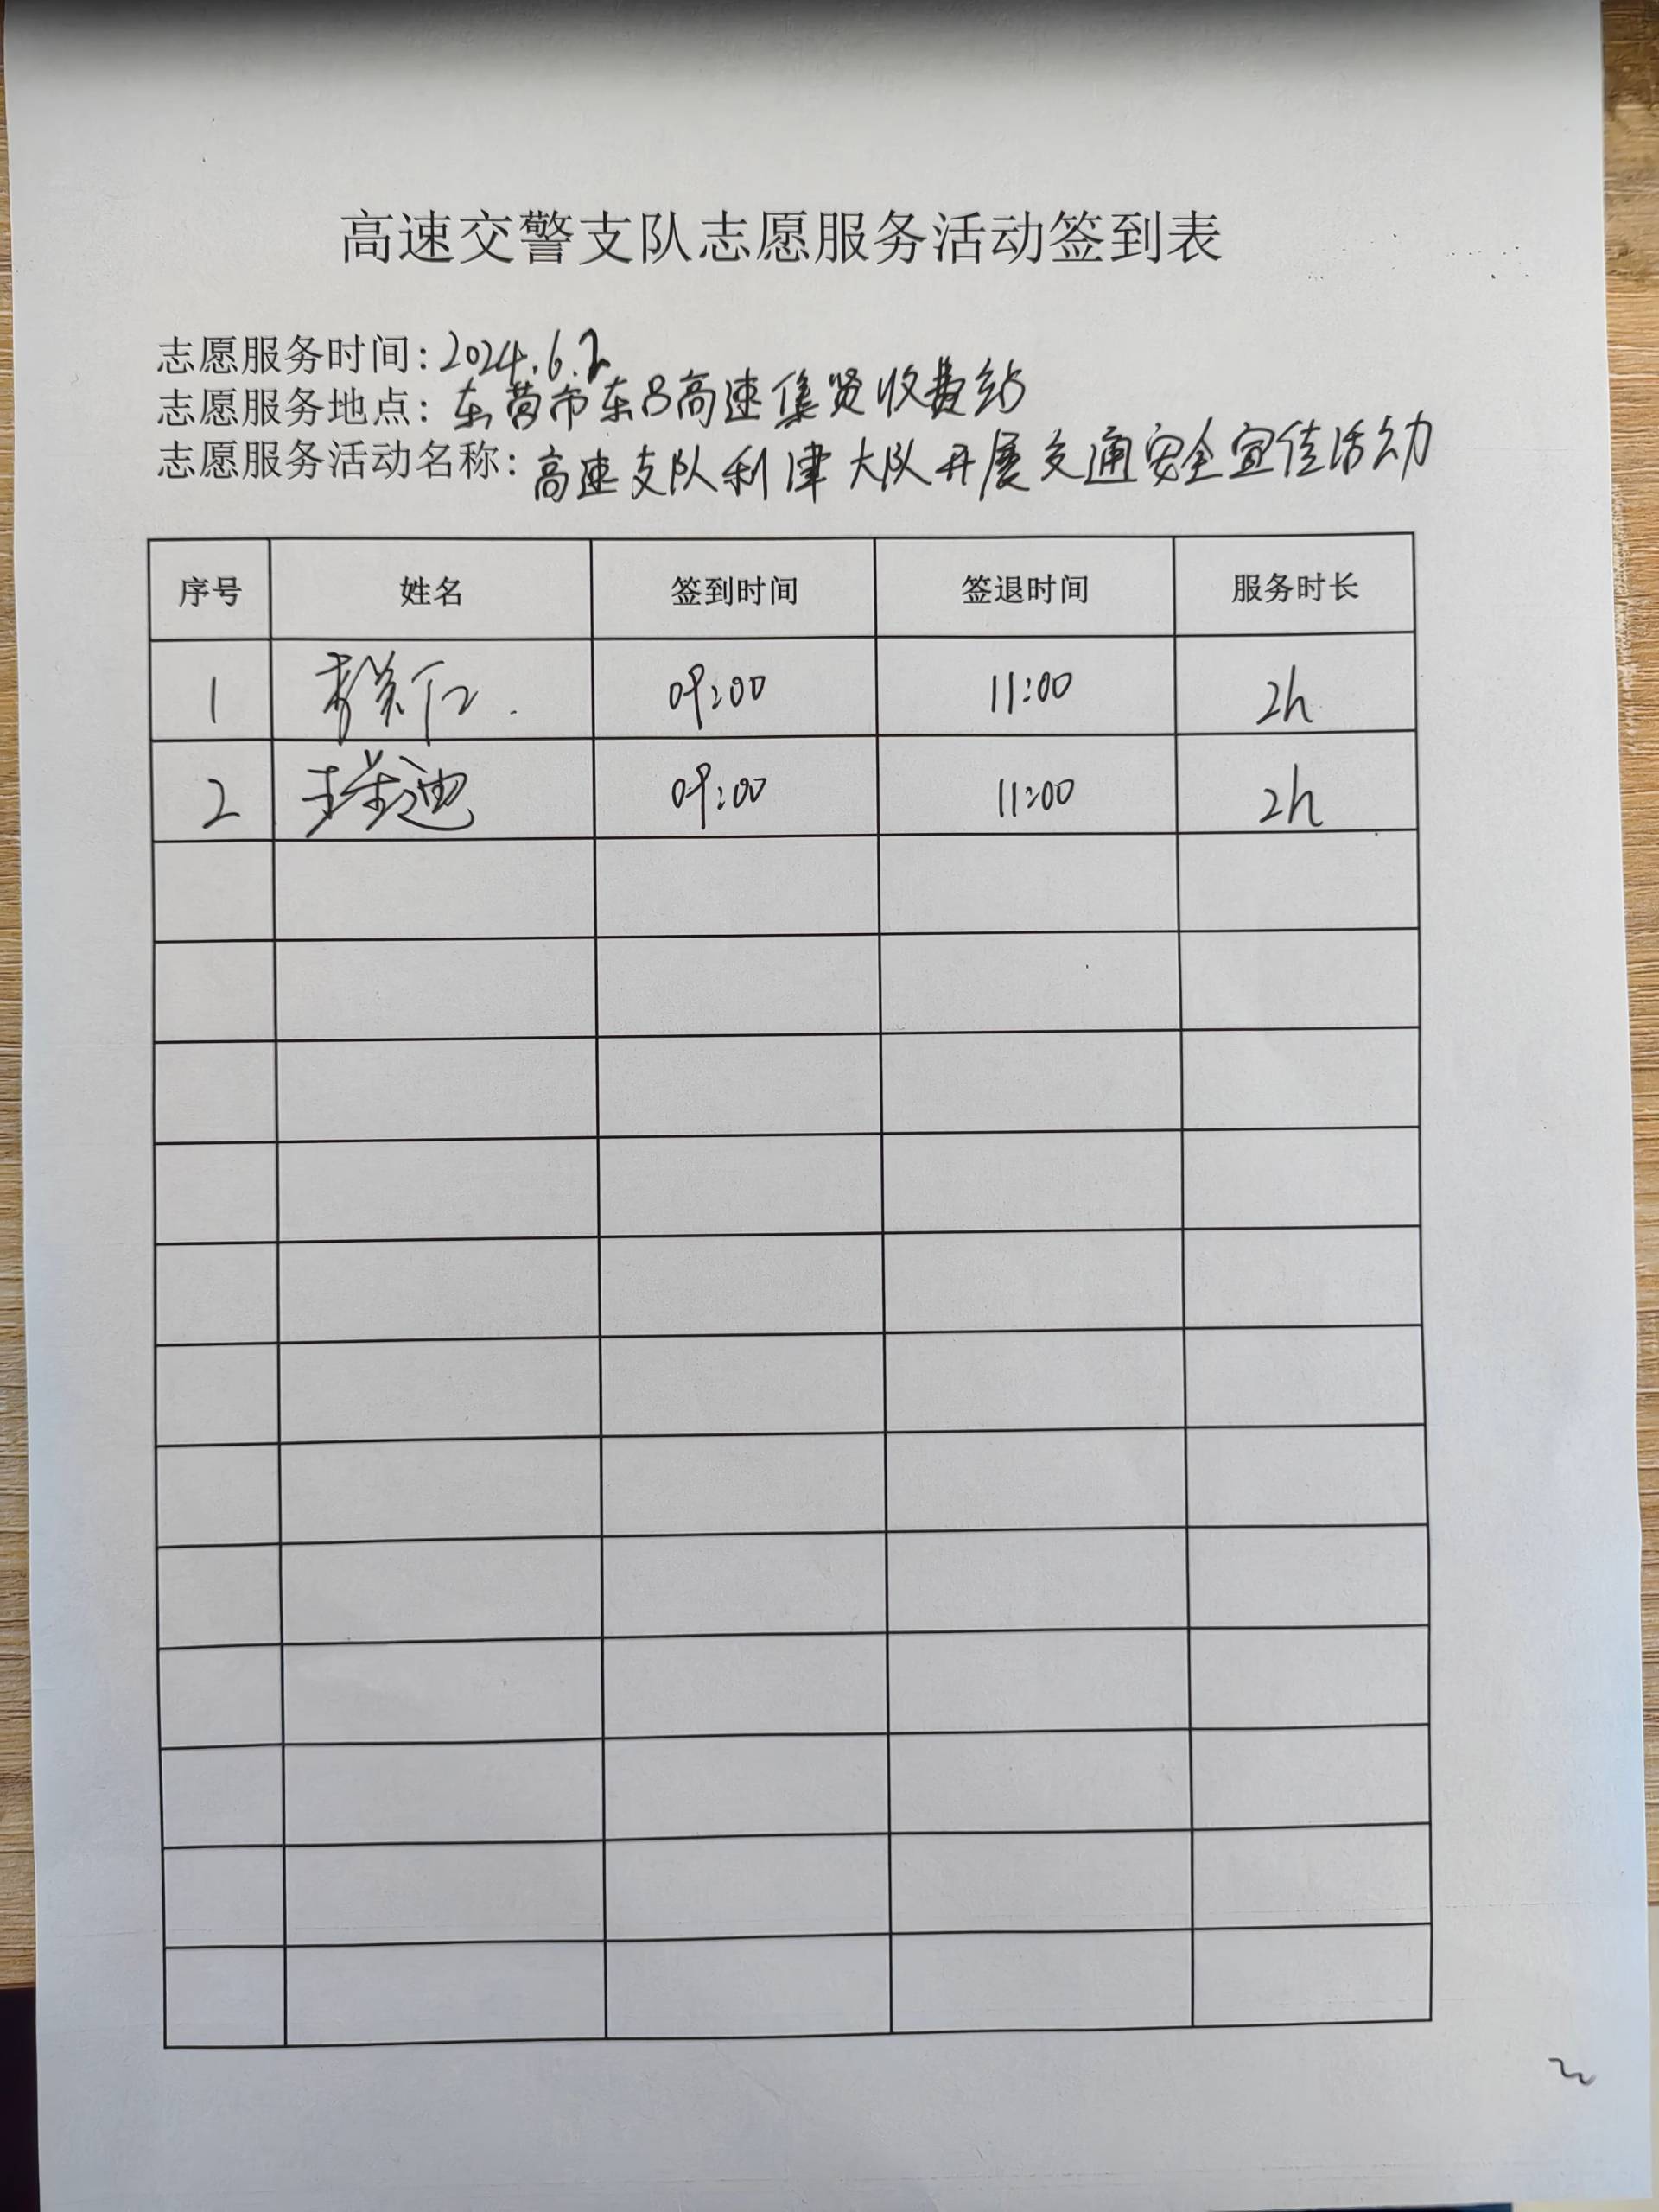 高速交警支队志愿服务活动签到表
志愿服务时间：2024.6.2
志愿服务地点：东营市东吕高速集贤收费站
志愿服务活动名称：高速支队利津大队开展交通安全宣传活动
序号 姓名 签到时间 签退时间 服务时长
1 09:00 11:00 2h
2 09:00 11:00 2h